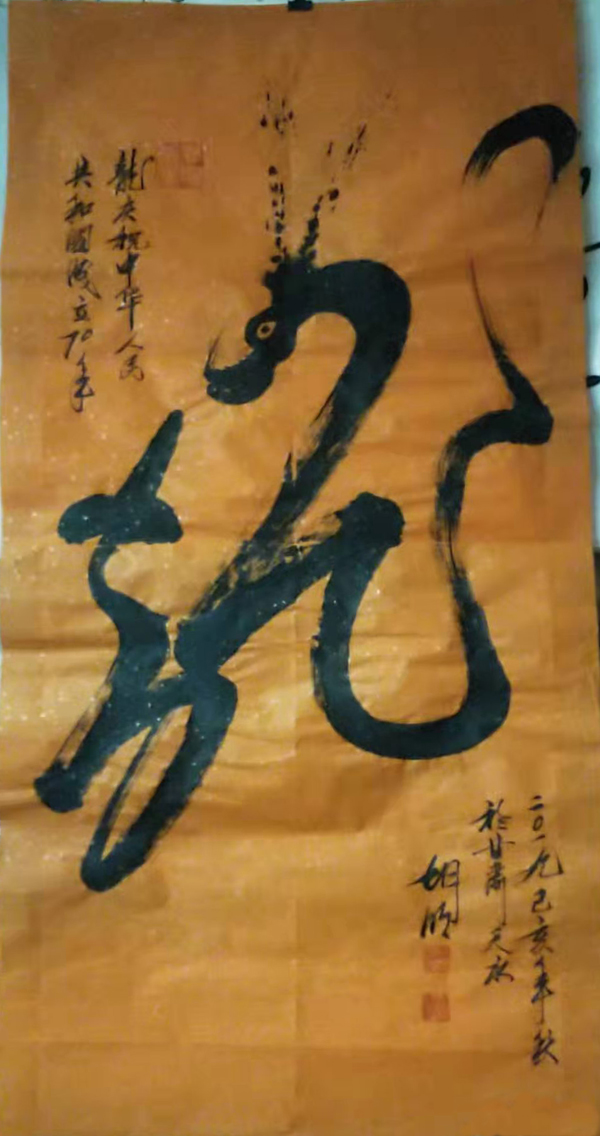 龍
龍庆祝中华人民
共和國成立70年
二〇一九己亥年秋
於甘肃天水
胡